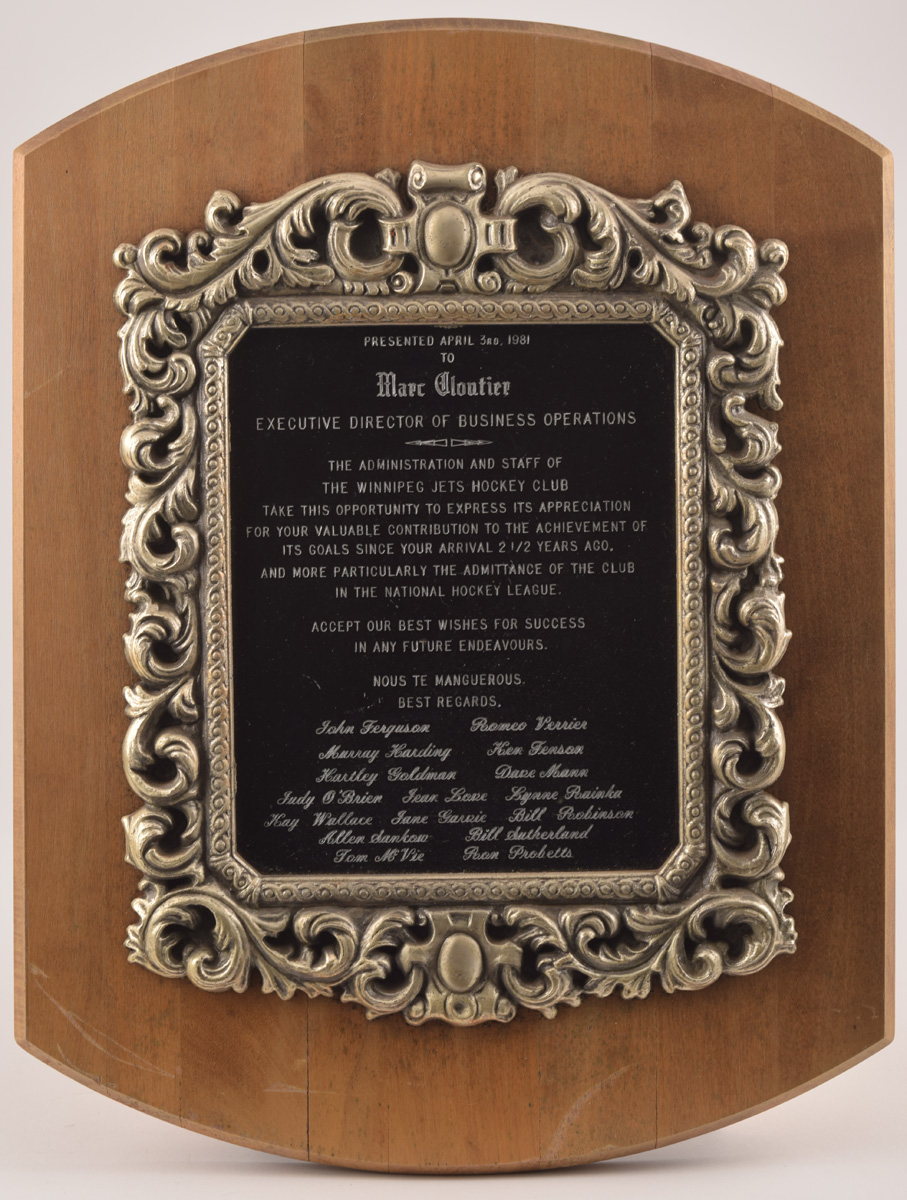 PRESENTED APRIL 3RD, 1981
TO
Marc Cloutier
EXECUTIVE DIRECTOR OF BUSINESS OPERATIONS
THE ADMINISTRATION AND STAFF OF
THE WINNIPEG JETS HOCKEY CLUB
TAKE THIS OPPORTUNITY TO EXPRESS ITS APPRECIATION
FOR YOUR VALUABLE CONTRIBUTION TO THE ACHIEVEMENT OF
ITS GOALS SINCE YOUR ARRIVAL 2 1/2 YEARS AGO,
AND MORE PARTICULARLY THE ADMITTANCE OF THE CLUB
IN THE NATIONAL HOCKEY LEAGUE.
ACCEPT OUR BEST WISHES FOR SUCCESS
IN ANY FUTURE ENDEAVOURS.
NOUS TE MANGUEROUS.
BEST REGARDS,
John Ferguson Romeo Verrier
Murray Harding Ken Fenson
Hartley Goldman Dave Mann
Judy O'Brien Jean Love Lynne Rainka
Kay Wallace Jane Garrie Bill Robinson
Allen Sankow Bill Sutherland
Tom McVie Ron Probetts